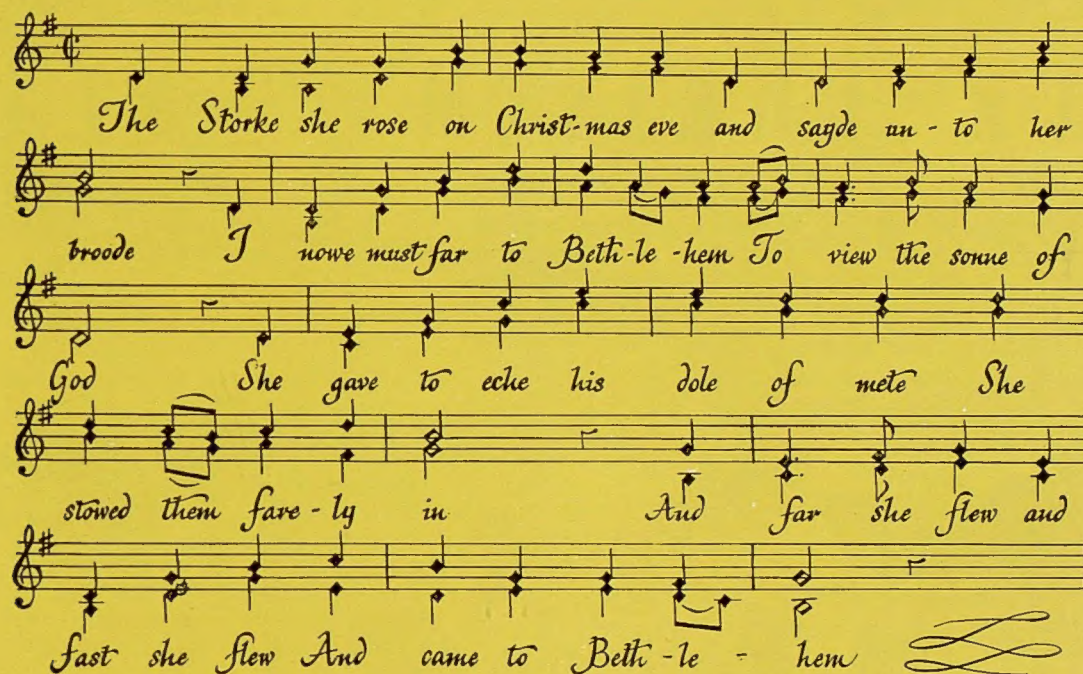 The Storke she rose on Christ-mas eve and sayde un-to her
broode I nowe must far to Beth-le-hem To view the sonne of
God She gave to eche his dole of mete She
stowed them fare-ly in And far she flew and
fast she flew And came to Beth-le-hem